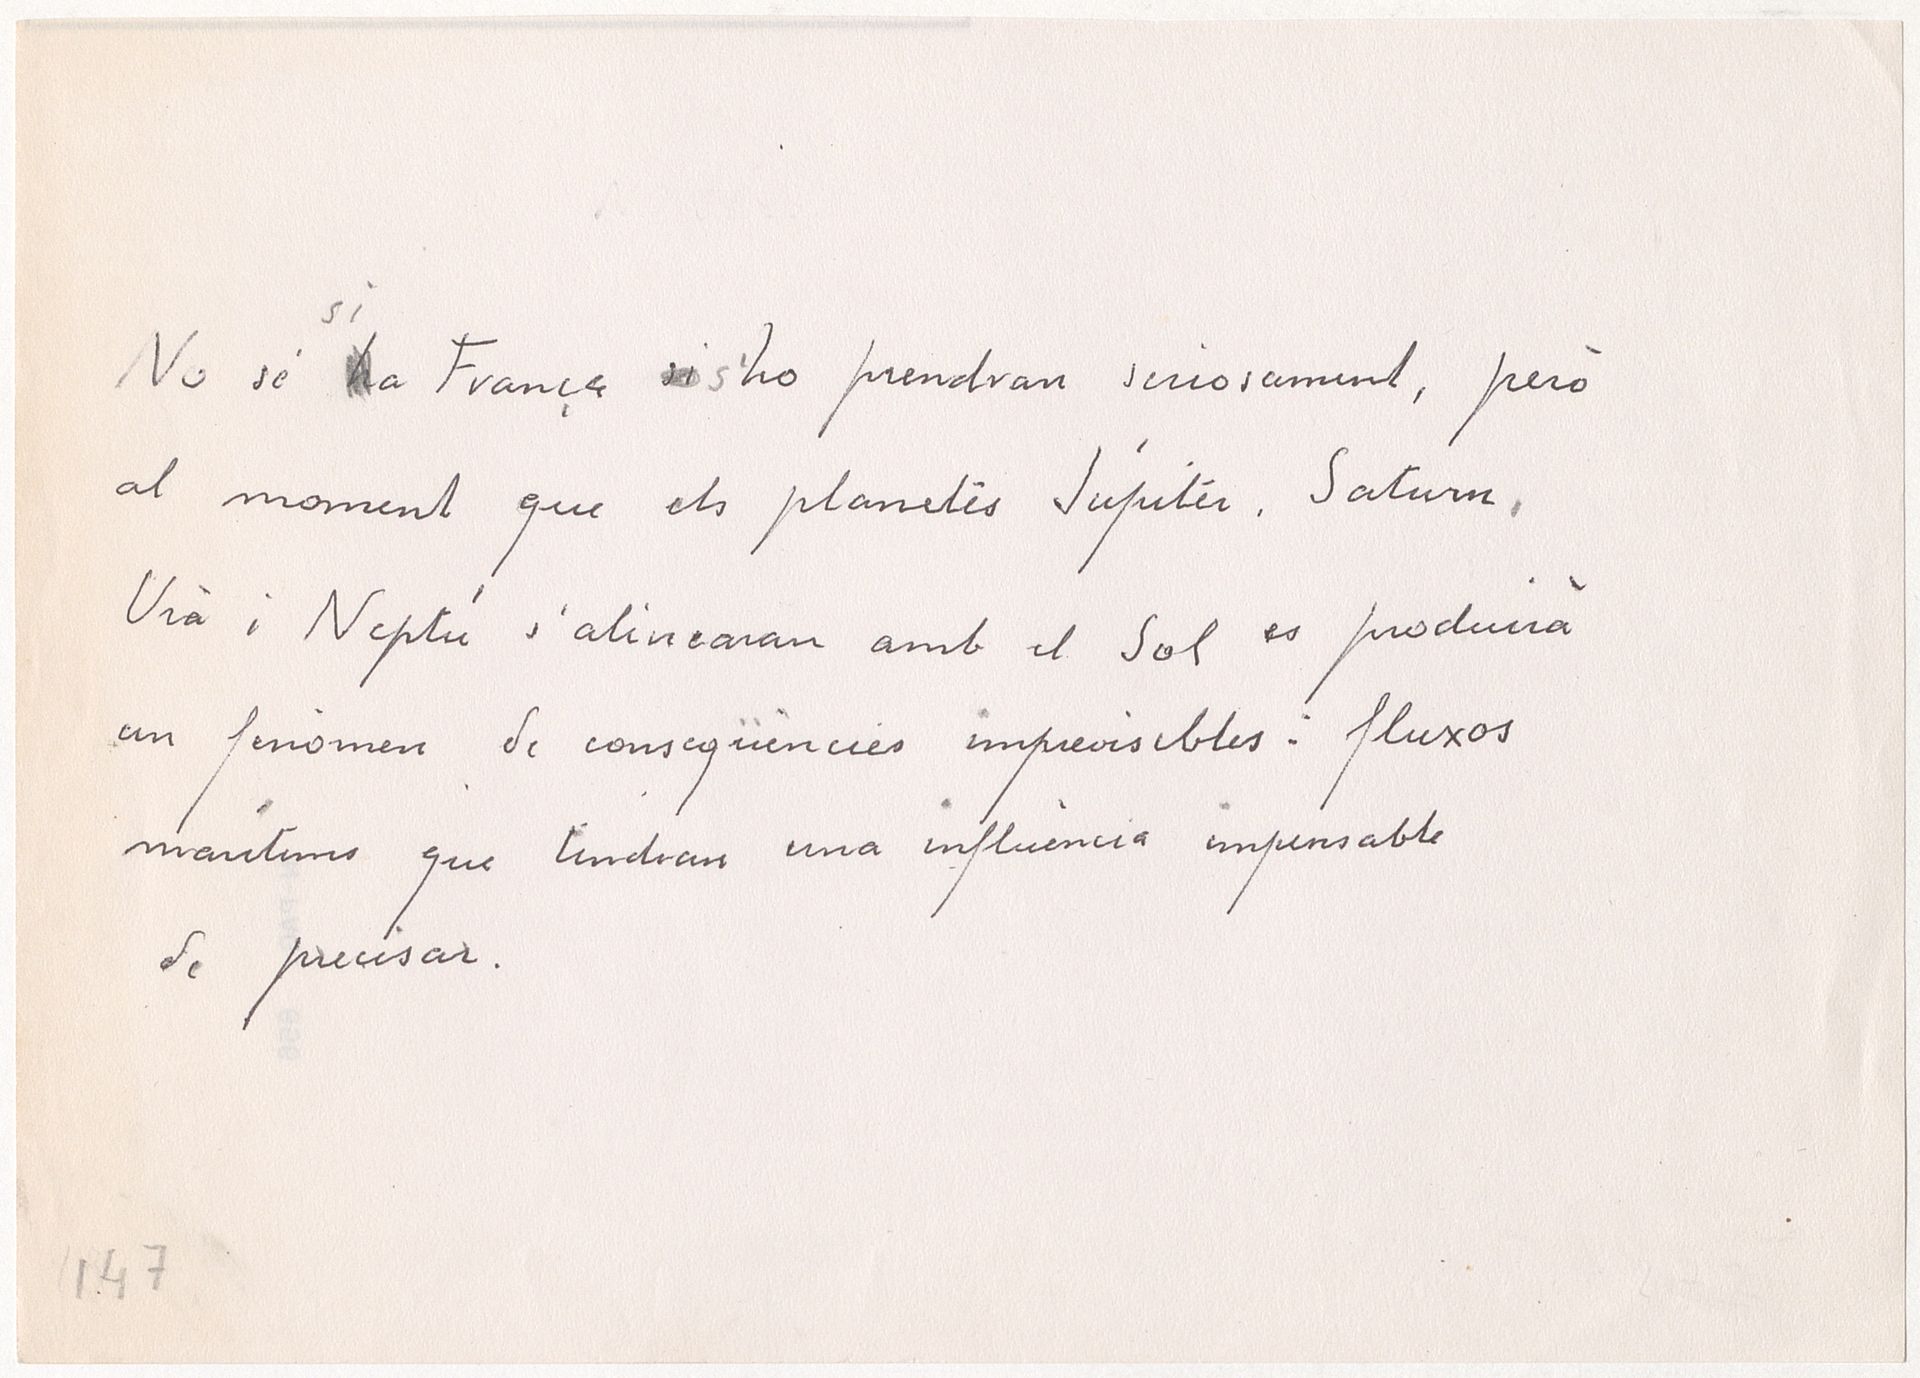 si
No sé a França s'ho prendran seriosament, però
al moment que els planetes Júpiter, Saturn,
Urà i Neptú s'alinearan amb el Sol es produirà
un fenòmen de conseqüències imprevisibles: fluxos
marítims que tindran una influència impensable
de precisar.
147